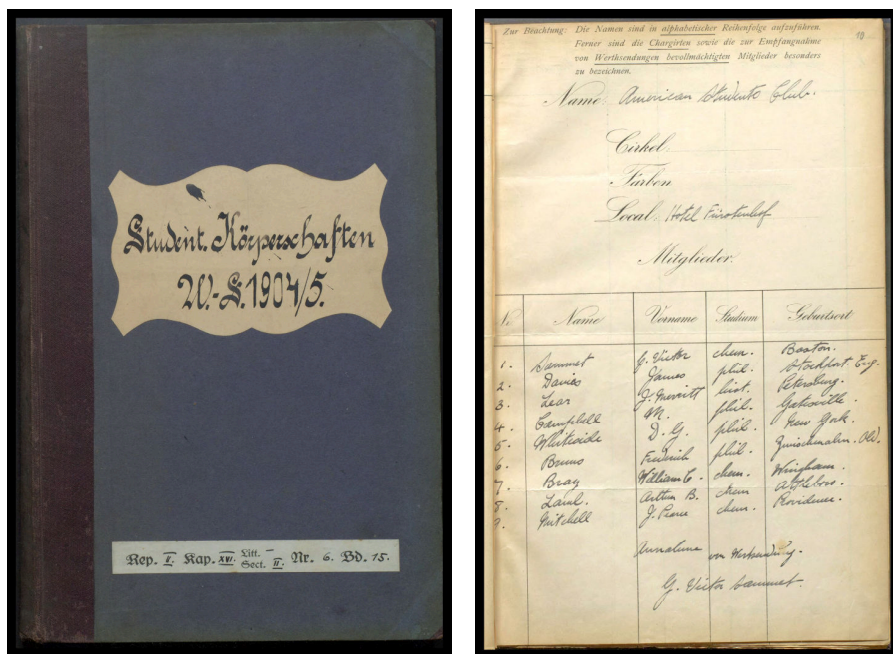 Student. Körperschaften
W.-S. 1904/5.
Rep. II. Kap. XVI. Litt. — Sect. II. Nr. 6. Bd. 15.
Zur Beachtung: Die Namen sind in alphabetischer Reihenfolge aufzuführen.
Ferner sind die Chargirten sowie die zur Empfangnahme
von Werthsendungen bevollmächtigten Mitglieder besonders
zu bezeichnen.
Name: American Students Club.
Cirkel:
Farben
Local: Hotel Fürstenhof
Mitglieder:
Nr. Name Vorname Studium Geburtsort
1. Sammet G. Victor chem. Boston.
2. Davies James phil. Stockport Eng.
3. Lear J. Merritt hist. Petersburg.
4. Campbell M. phil. Gatesville.
5. Whiteside D. G. phil. New York.
6. Bruns Friedrich phil. Zwischenahn. Old.
7. Bray William C. chem. Wingham.
8. Lamb. Arthur B. chem Attleboro.
9. Mitchell J. Pearce chem. Providence.
Annahme von Wertsendung.
G. Victor Sammet.